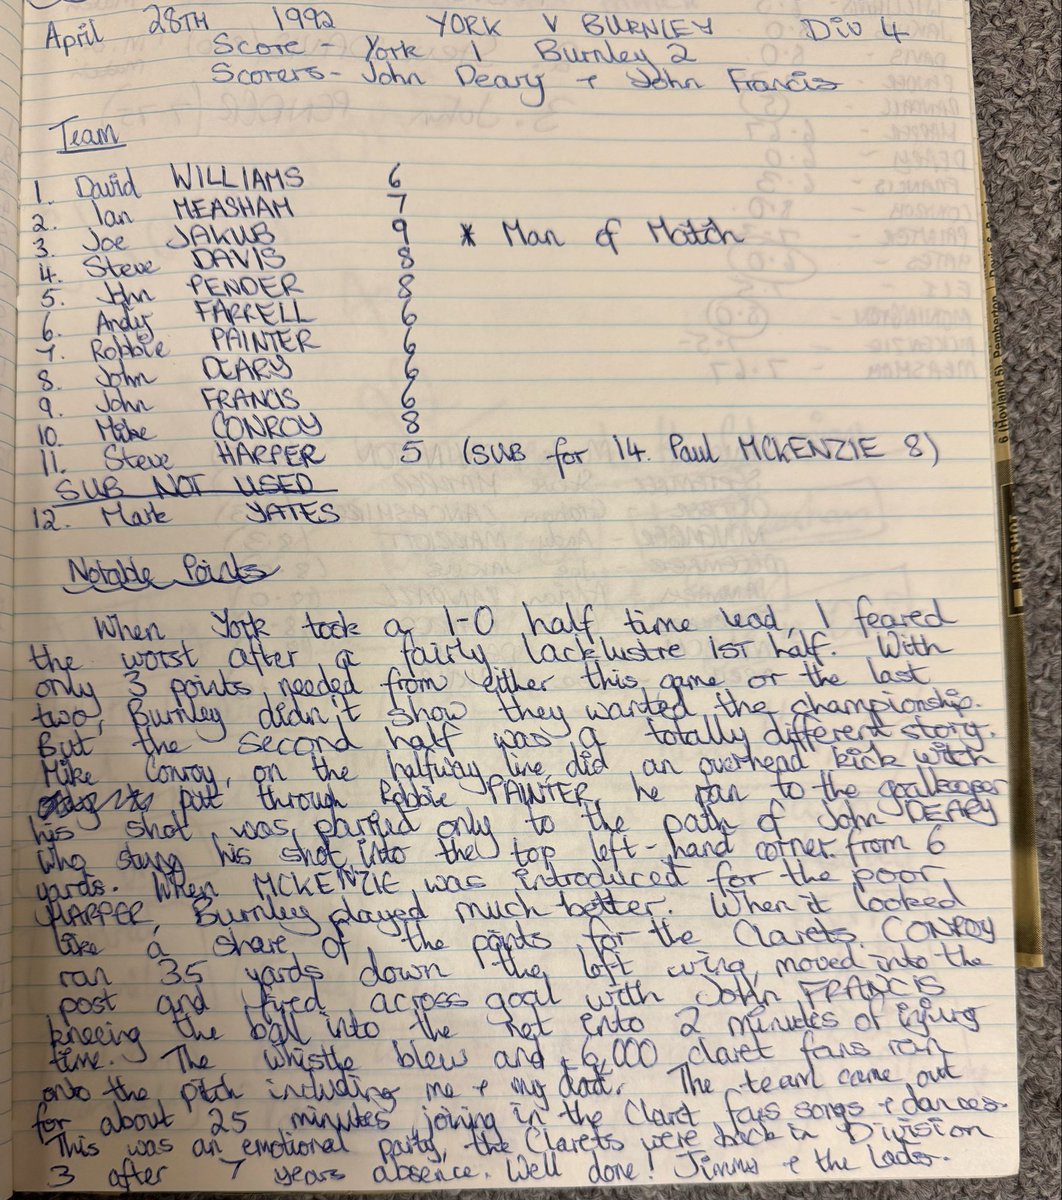 April 28TH 1992 YORK V BURNLEY Div 4
Score - York 1 Burnley 2
Scorers - John Deary + John Francis
Team
1. David WILLIAMS 6
2. Ian MEASHAM 7
3. Joe JAKUB 9 * Man of Match
4. Steve DAVIS 8
5. John PENDER 8
6. Andy FARRELL 6
7. Robbie PAINTER 6
8. John DEARY 6
9. John FRANCIS 6
10. Mike CONROY 8
11. Steve HARPER 5 (SUB for 14. Paul MCKENZIE 8)
SUB NOT USED
12. Mark YATES
Notable Points
When York took a 1-0 half time lead, I feared
the worst after a fairly lacklustre 1ST half. With
only 3 points needed from either this game or the last
two, Burnley didn't show they wanted the championship.
But the second half was a totally different story.
Mike Conroy, on the halfway line did an overhead kick with
put through Robbie PAINTER, he ran to the goalkeeper
his shot was parried only to the path of John DEARY
who stung his shot into the top left-hand corner from 6
yards. When MCKENZIE was introduced for the poor
HARPER, Burnley played much better. When it looked
like a share of the points for the Clarets, CONROY
ran 35 yards down the left wing, moved into the
post and fired across goal with John FRANCIS
kneeing the ball into the net into 2 minutes of injury
time. The whistle blew and 6,000 claret fans ran
onto the pitch including me + my dad. The team came out
for about 25 minutes joining in the Claret fans songs + dances.
This was an emotional party, the Clarets were back in Division
3 after 7 years absence. Well done! Jimmy + the lads.
HOTSHOT